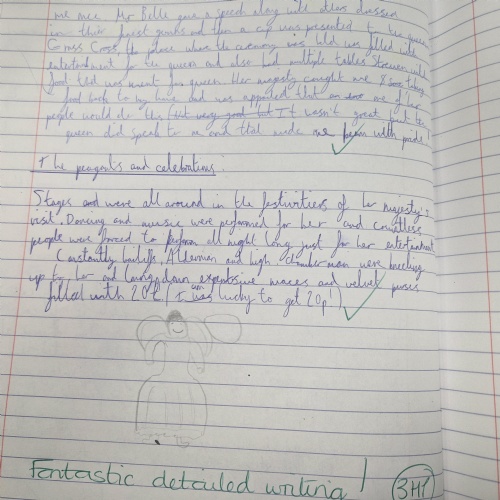 me mee Mr Belle gave a speech along with others dressed
in their finest gowns and then a cup was presented to the queen
Gross Cross, the place where the ceremony was held was filled with
entertainment for the queen and also had multiple tables Strewn with
food that was meant for queen. Her majesty caught me taking
food back to my home and was appauled that one of her
people would do this but very good but It wasn't great but the
queen did speak to me and that made me beam with pride!
The pageants and celebrations:
Stages and were all around in the festivities of her majesty's
visit. Dancing and music were performed for her and countless
people were forced to perform all night long just for her entertainment
Constantly bailiffs, Alderman and high chamberman were kneeling
up to her and laying down expensive maces and velvet purses
filled with 20£ (I am was lucky to get 20p!)
Fantastic detailed writing!
3HP